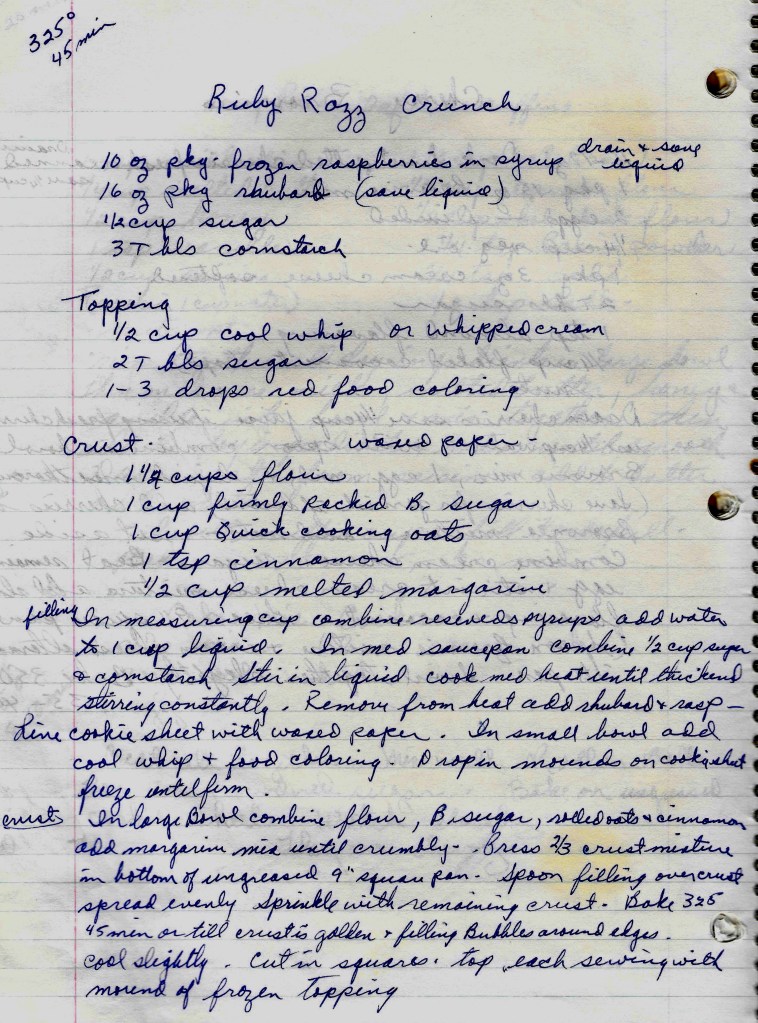 325°
45 min
Ruby Razz Crunch
10 oz pkg. frozen raspberries in syrup drain & save liquid
16 oz pkg rhubarb (save liquid)
1/2 cup sugar
3 Tbls cornstarch
Topping
1/2 cup cool whip or whipped cream
2 Tbls sugar
1-3 drops red food coloring
Crust. waxed paper -
1 1/4 cups flour
1 cup firmly packed B. sugar
1 cup quick cooking oats
1 tsp cinnamon
1/2 cup melted margarine
filling In measuring cup combine reserveds syrups add water
to 1 cup liquid. In med saucepan combine 1/2 cup sugar
& cornstarch Stir in liquid cook med heat until thickend
stirring constantly. Remove from heat add rhubard & rasp -
Line cookie sheet with waxed paper. In small bowl add
cool whip & food coloring. Drop in mounds on cookie sheet
freeze until firm.
crust In large Bowl combine flour, B sugar, rolled oats & cinnamon
add margarine mix until crumbly - Press 2/3 crust mixture
in bottom of ungreased 9" square pan. Spoon filling over crust
spread evenly Sprinkle with remaining crust. Bake 325
45 min or till crust is golden & filling Bubbles around edges.
cool slightly. Cut in squares. top each serving with
mound of frozen topping